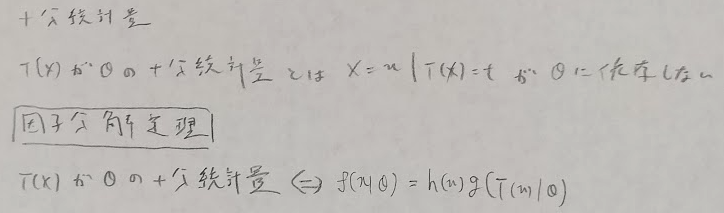 十分統計量
T(X)がθの十分統計量とは X=x|T(X)=t がθに依存しない
因子分解定理
T(X)がθの十分統計量 ⇔ f(x|θ) = h(x)g(T(x)|θ)